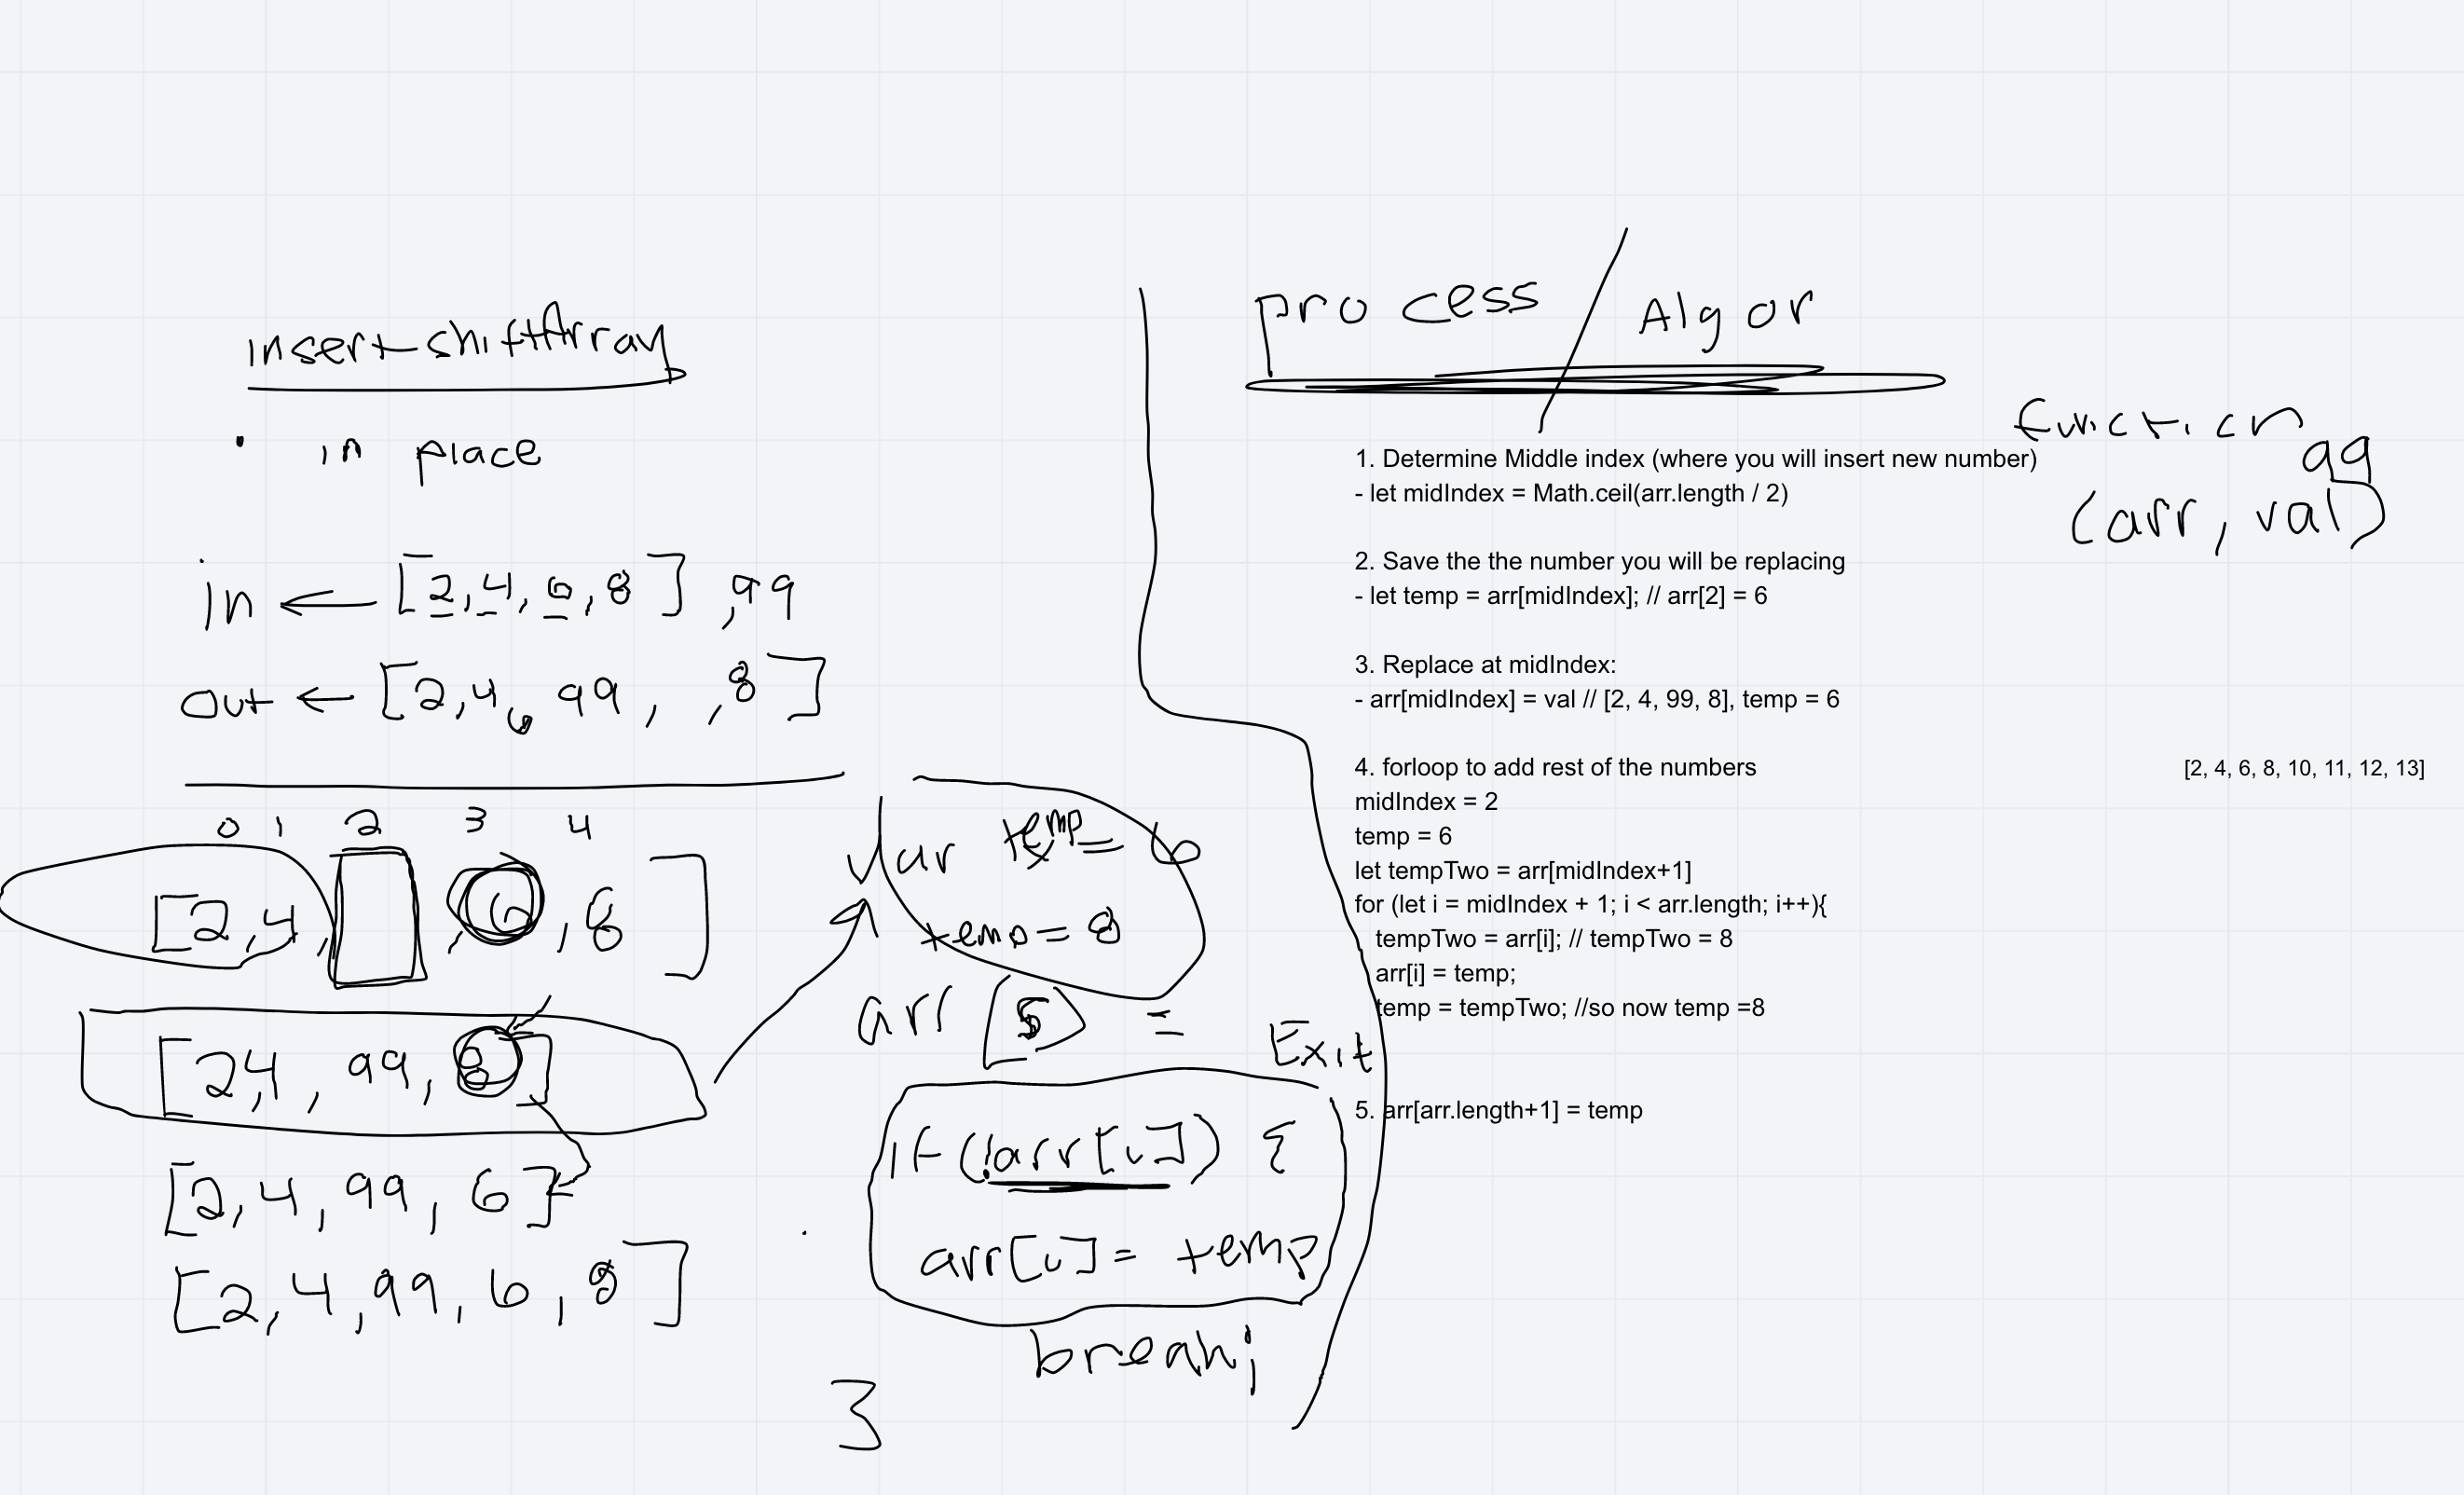 insert-shiftArray
. in place
in ← [2,4,6,8] ,99
out ← [2,4, 99, ,8]
6
0 1 2 3 4
[2,4, , 6, 8]
[2,4, 99, 8]
[2,4, 99, 6]
[2,4,99,6,8]
var temp = 6
temp = 8
arr [5] =
Exit
if (!arr[i]) {
arr[i] = temp
break;
3
process / Algor
1. Determine Middle index (where you will insert new number)
- let midIndex = Math.ceil(arr.length / 2)
2. Save the the number you will be replacing
- let temp = arr[midIndex]; // arr[2] = 6
3. Replace at midIndex:
- arr[midIndex] = val // [2, 4, 99, 8], temp = 6
4. forloop to add rest of the numbers
midIndex = 2
temp = 6
let tempTwo = arr[midIndex+1]
for (let i = midIndex + 1; i < arr.length; i++){
tempTwo = arr[i]; // tempTwo = 8
arr[i] = temp;
temp = tempTwo; //so now temp =8
5. arr[arr.length+1] = temp
function
99
(arr, val)
[2, 4, 6, 8, 10, 11, 12, 13]